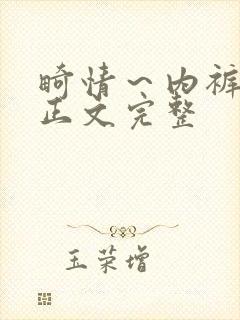 畸情~内裤
正文完整
玉荣增